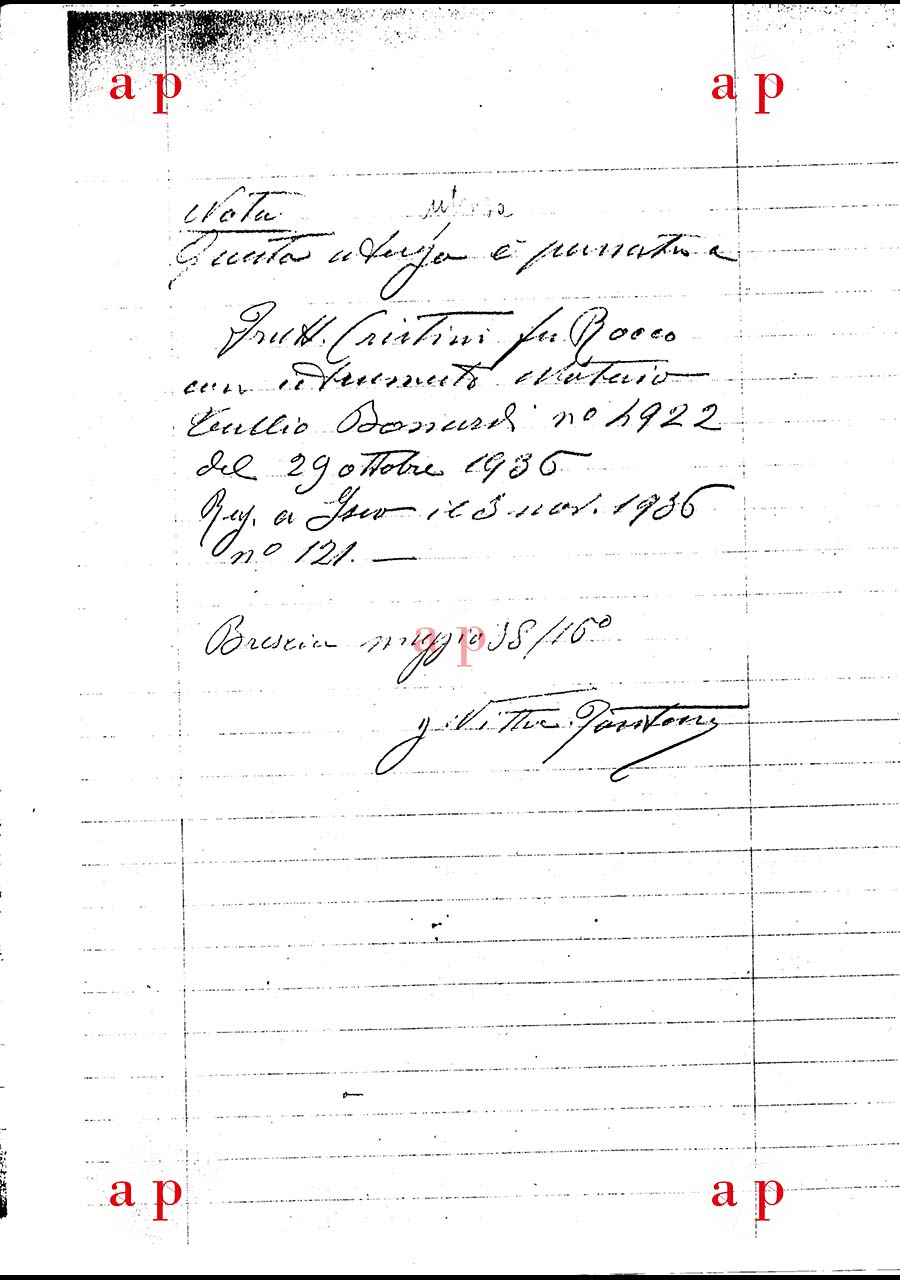 a p a p
Nota
Questa è passata a
Fratt. Cristini fu Rocco
con istrumento Notaio
Tullio Bonardi n° 4922
del 29 ottobre 1936
Reg. a Iseo il 3 nov. 1936
n° 121. —
Brescia maggio 38/16°
a p
a p a p